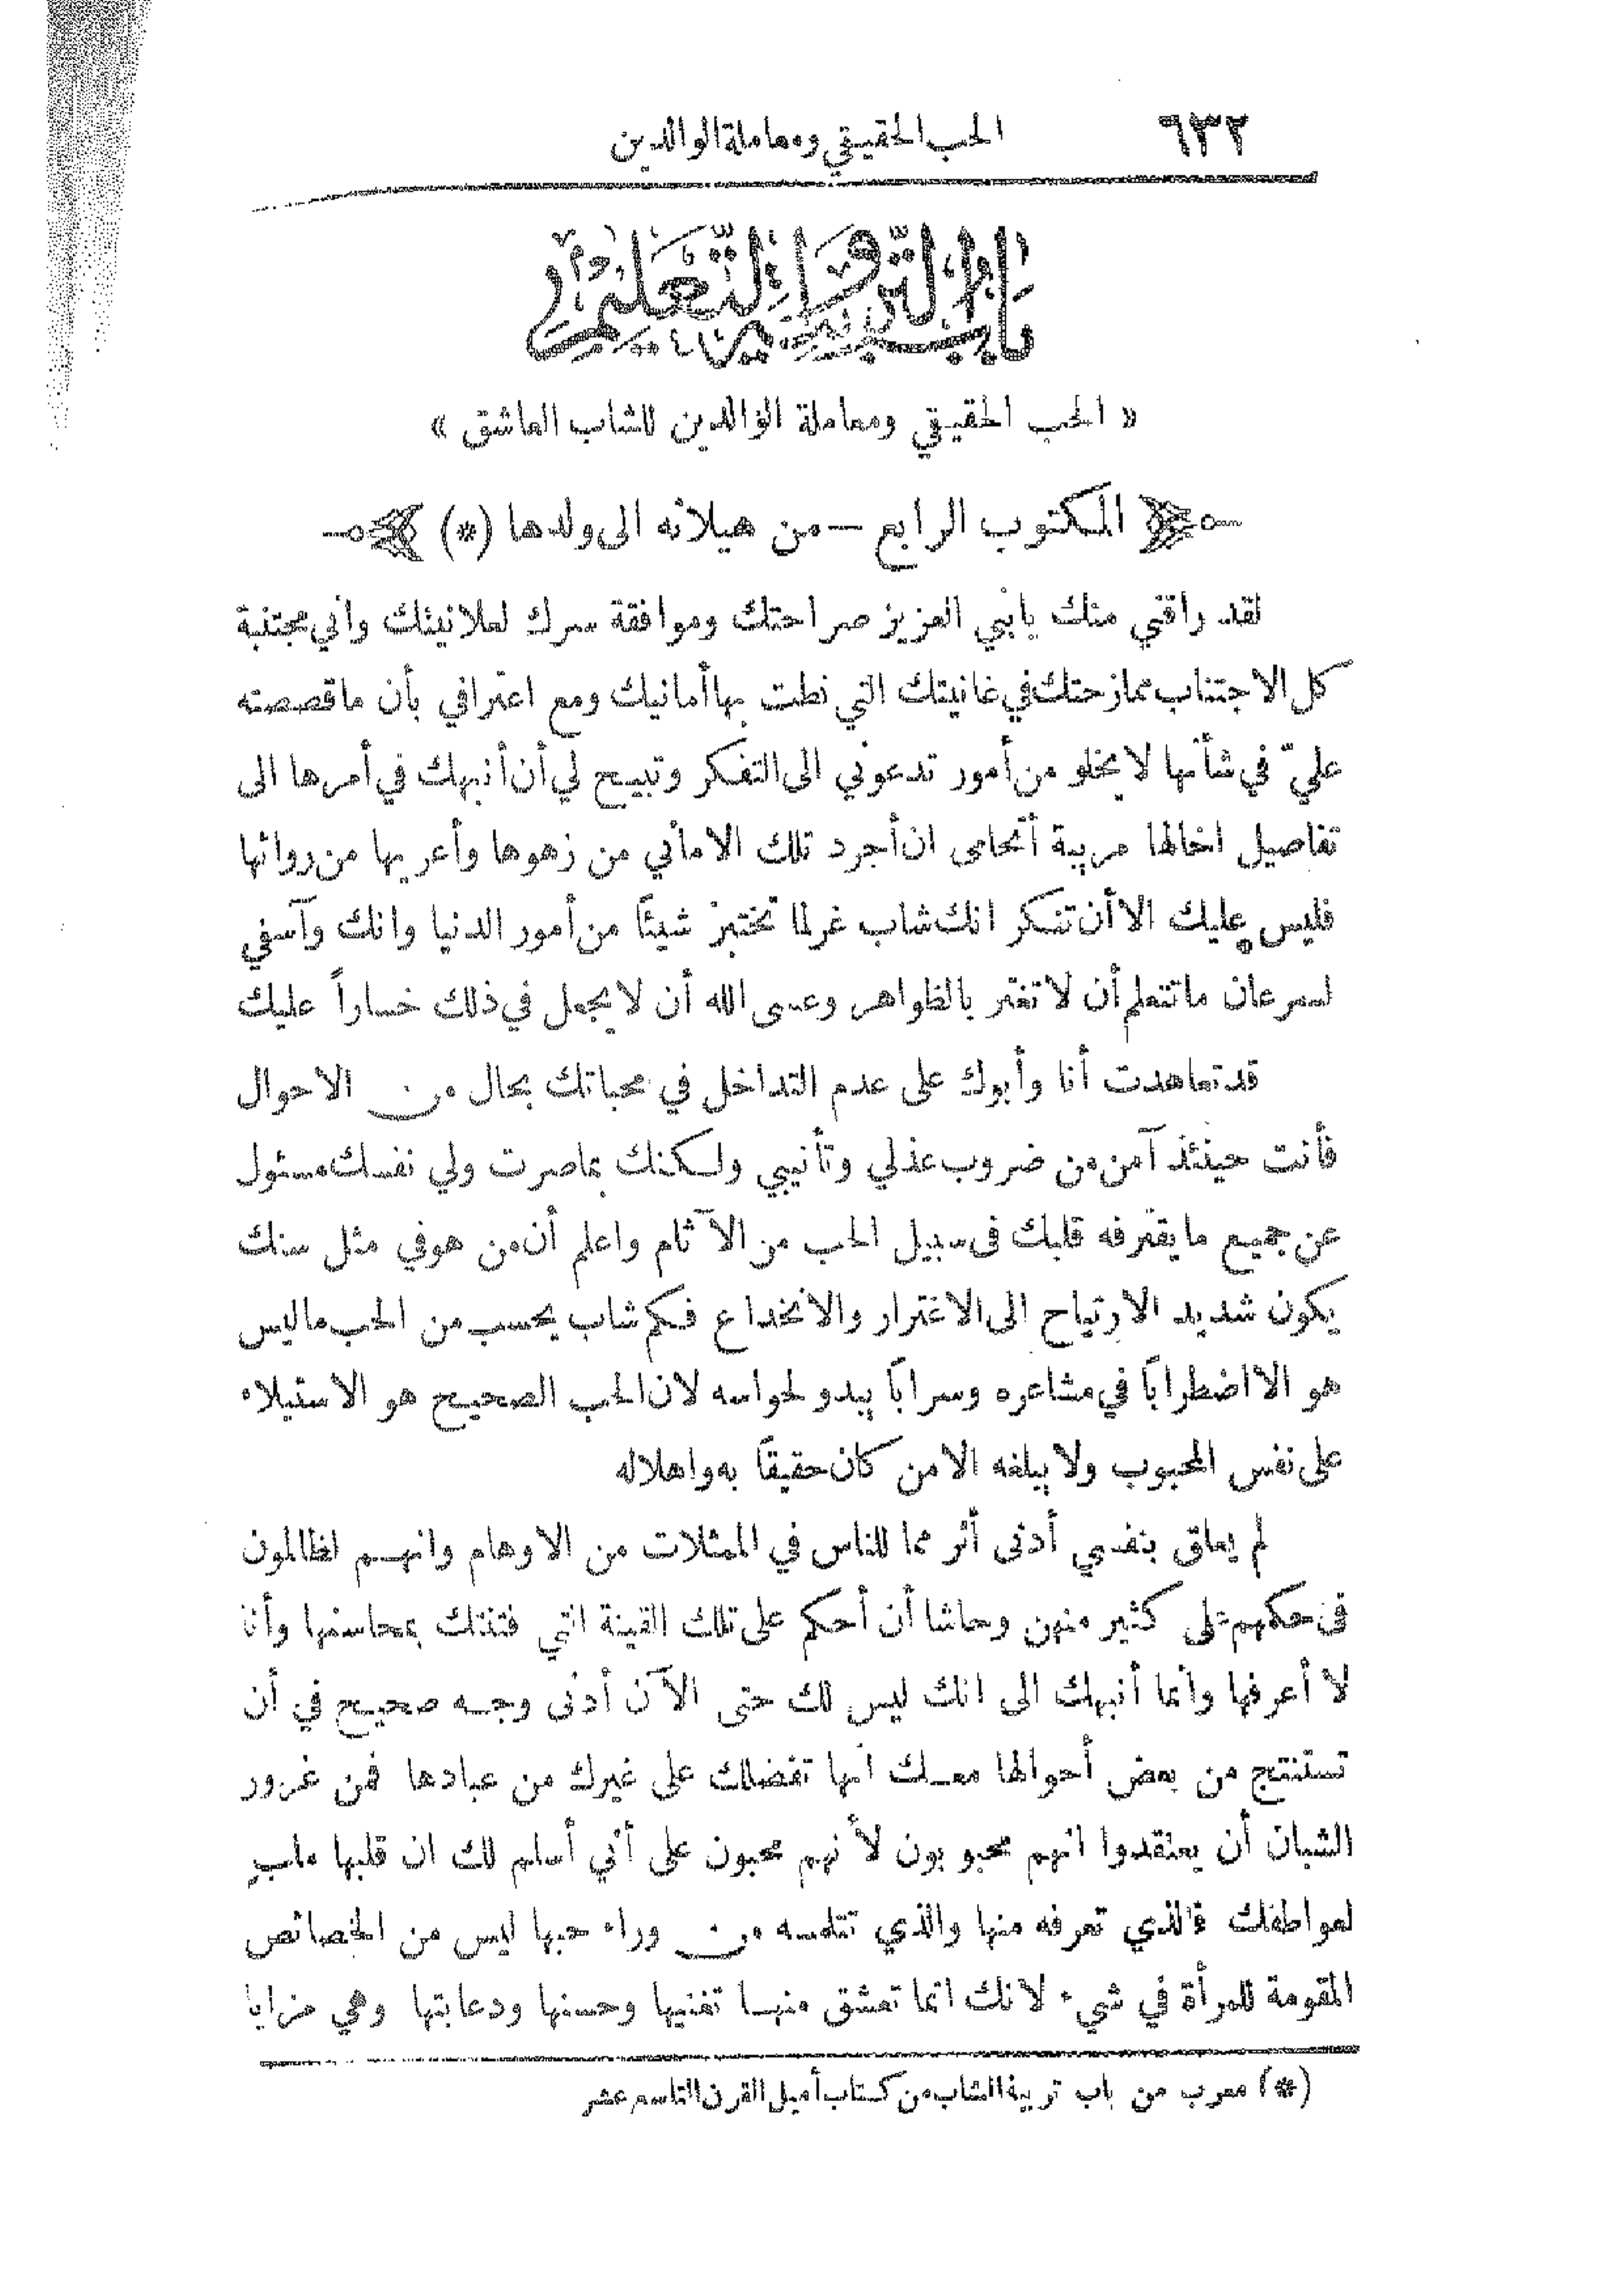 ٦٣٢ الحب الحقيقي ومعاملة الوالدين
باب التربية والتعليم
« الحب الحقيقي ومعاملة الوالدين للشاب العاشق »
المكتوب الرابع — من هيلانه الى ولدها (*)
لقد راقني منك يابني العزيز صراحتك وموافقة سرك لعلانيتك واني مجتنبة
كل الاجتناب ممازحتك في غانيتك التي نطت بها أمانيك ومع اعترافي بأن ماقصصته
عليّ في شأنها لا يخلو من أمور تدعوني الى التفكر وتبيح لي أن أنبهك في أمرها الى
تفاصيل اخالها مريبة أتحامى ان أجرد تلك الاماني من زهوها وأعريها من روائها
فليس عليك الا أن تتفكر انك شاب غر لما تختبر شيئًا من أمور الدنيا وانك وآسفي
لسرعان ما تتعلم أن لا تغتر بالظواهر وعسى الله أن لا يجعل في ذلك خساراً عليك
قد تعاهدت أنا وأبوك على عدم التداخل في محباتك بحال من الاحوال
فأنت حينئذ آمن من ضروب عذلي وتأنيبي ولكنك بماصرت ولي نفسك مسئول
عن جميع ما يقترفه قلبك في سبيل الحب من الآثام واعلم أن من هو في مثل سنك
يكون شديد الارتياح الى الاغترار والانخداع فكم شاب يحسب من الحب ماليس
هو الا اضطرابًا في مشاعره وسرابًا يبدو لحواسه لان الحب الصحيح هو الاستيلاء
على نفس المحبوب ولا يبلغه الا من كان حقيقًا به واهلا له
لم يعلق بنفسي أدنى أثر مما للناس في الممثلات من الاوهام وانهم لظالمون
في حكمهم على كثير منهن وحاشا أن أحكم على تلك القينة التي فتنتك بمحاسنها وأنا
لا أعرفها وانما أنبهك الى انك ليس لك حتى الآن أدنى وجه صحيح في أن
تستنتج من بعض أحوالها معك انها تفضلك على غيرك من عبادها فمن غرور
الشبان أن يعتقدوا انهم محبوبون لأنهم محبون على أني أسلم لك ان قلبها ملب
لعواطفك فالذي تعرفه منها والذي تتلمسه من وراء حبها ليس من الخصائص
المقومة للمرأة في شيء لانك انما تعشق منها تغنيها وحسنها ودعابتها وهي مزايا
(*) معرب من باب تربية الشاب من كتاب أميل القرن التاسع عشر